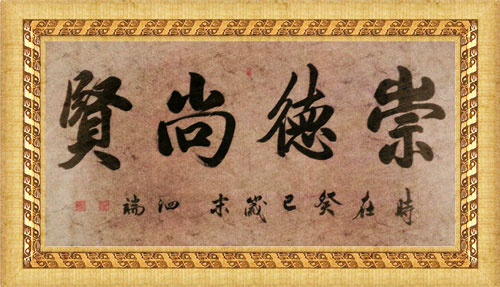 崇德尚賢
時在癸巳歲末泗瑞